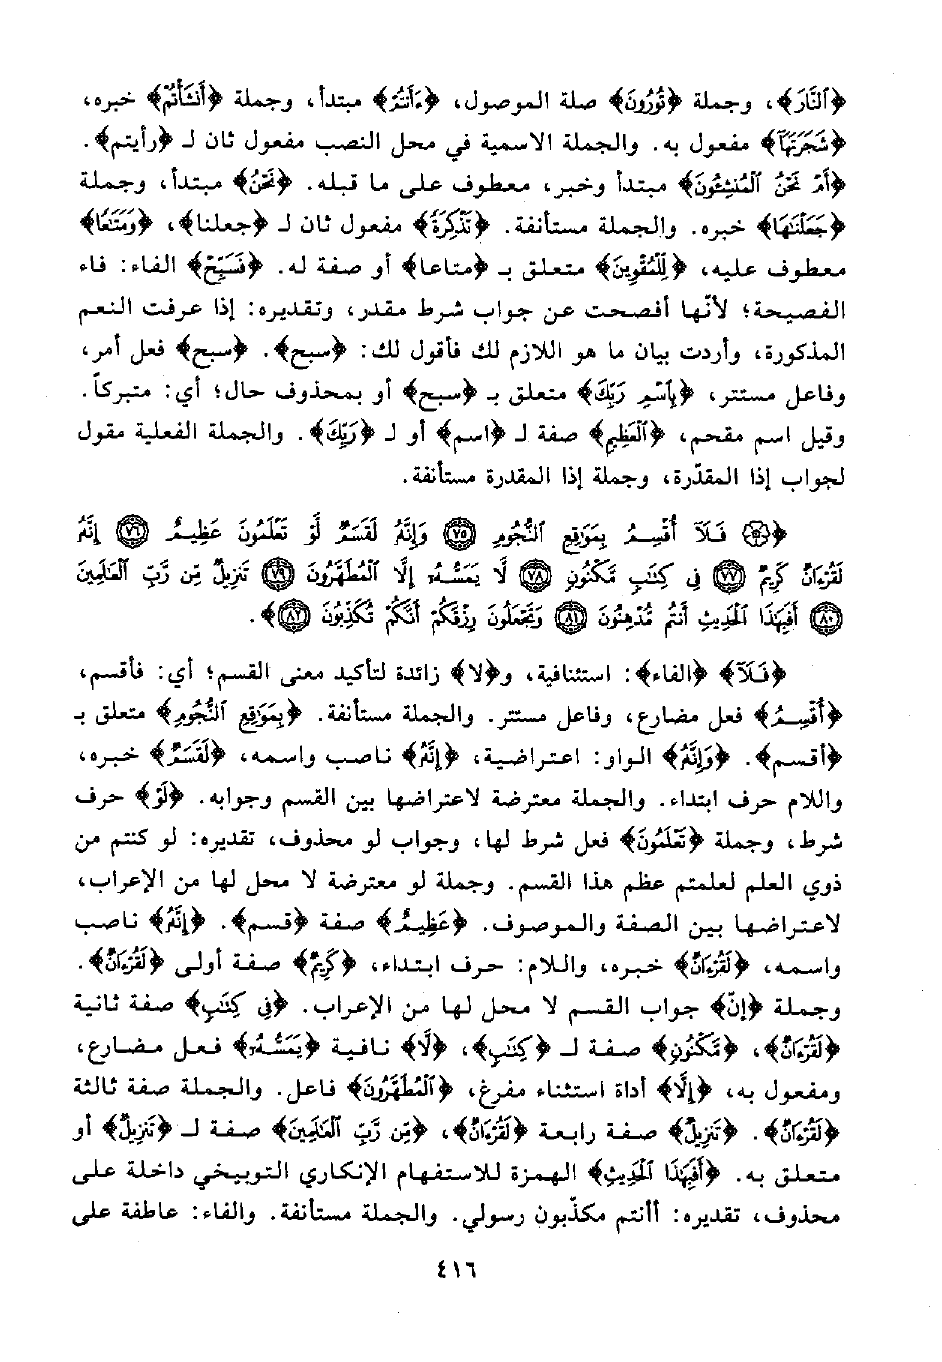 ﴿النَّارَ﴾، وجملة ﴿تُورُونَ﴾ صلة الموصول، ﴿ءَأَنتُمْ﴾ مبتدأ، وجملة ﴿أَنشَأْتُمْ﴾ خبره،
﴿شَجَرَتَهَا﴾ مفعول به. والجملة الاسمية في محل النصب مفعول ثان لـ ﴿رأيتم﴾.
﴿أَمْ نَحْنُ الْمُنشِئُونَ﴾ مبتدأ وخبر، معطوف على ما قبله. ﴿نَحْنُ﴾ مبتدأ، وجملة
﴿جَعَلْنَاهَا﴾ خبره. والجملة مستأنفة. ﴿تَذْكِرَةً﴾ مفعول ثان لـ ﴿جعلنا﴾، ﴿وَمَتَاعًا﴾
معطوف عليه، ﴿لِّلْمُقْوِينَ﴾ متعلق بـ ﴿متاعا﴾ أو صفة له. ﴿فَسَبِّحْ﴾ الفاء: فاء
الفصيحة؛ لأنّها أفصحت عن جواب شرط مقدر، وتقديره: إذا عرفت النعم
المذكورة، وأردت بيان ما هو اللازم لك فأقول لك: ﴿سبح﴾. ﴿سبح﴾ فعل أمر،
وفاعل مستتر، ﴿بِاسْمِ رَبِّكَ﴾ متعلق بـ ﴿سبح﴾ أو بمحذوف حال؛ أي: متبركاً.
وقيل اسم مقحم، ﴿الْعَظِيمِ﴾ صفة لـ ﴿اسم﴾ أو لـ ﴿رَبِّكَ﴾. والجملة الفعلية مقول
لجواب إذا المقدّرة، وجملة إذا المقدرة مستأنفة.
﴿۞ فَلَآ أُقْسِمُ بِمَوَاقِعِ النُّجُومِ ٧٥ وَإِنَّهُ لَقَسَمٌ لَّوْ تَعْلَمُونَ عَظِيمٌ ٧٦ إِنَّهُ
لَقُرْءَانٌ كَرِيمٌ ٧٧ فِى كِتَابٍ مَّكْنُونٍ ٧٨ لَّا يَمَسُّهُ إِلَّا الْمُطَهَّرُونَ ٧٩ تَنزِيلٌ مِّن رَّبِّ الْعَالَمِينَ
٨٠ أَفَبِهَٰذَا الْحَدِيثِ أَنتُم مُّدْهِنُونَ ٨١ وَتَجْعَلُونَ رِزْقَكُمْ أَنَّكُمْ تُكَذِّبُونَ ٨٢﴾.
﴿فَلَآ﴾ ﴿الفاء﴾: استئنافية، و﴿لا﴾ زائدة لتأكيد معنى القسم؛ أي: فأقسم،
﴿أُقْسِمُ﴾ فعل مضارع، وفاعل مستتر. والجملة مستأنفة. ﴿بِمَوَاقِعِ النُّجُومِ﴾ متعلق بـ
﴿أقسم﴾. ﴿وَإِنَّهُ﴾ الواو: اعتراضية، ﴿إِنَّهُ﴾ ناصب واسمه، ﴿لَقَسَمٌ﴾ خبره،
واللام حرف ابتداء. والجملة معترضة لاعتراضها بين القسم وجوابه. ﴿لَوْ﴾ حرف
شرط، وجملة ﴿تَعْلَمُونَ﴾ فعل شرط لها، وجواب لو محذوف، تقديره: لو كنتم من
ذوي العلم لعلمتم عظم هذا القسم. وجملة لو معترضة لا محل لها من الإعراب،
لاعتراضها بين الصفة والموصوف. ﴿عَظِيمٌ﴾ صفة ﴿قسم﴾. ﴿إِنَّهُ﴾ ناصب
واسمه، ﴿لَقُرْءَانٌ﴾ خبره، واللام: حرف ابتداء، ﴿كَرِيمٌ﴾ صفة أولى ﴿لَقُرْءَانٌ﴾.
وجملة ﴿إنّ﴾ جواب القسم لا محل لها من الإعراب. ﴿فِى كِتَابٍ﴾ صفة ثانية
﴿لَقُرْءَانٌ﴾، ﴿مَّكْنُونٍ﴾ صفة لـ ﴿كِتَابٍ﴾، ﴿لَّا﴾ نافية ﴿يَمَسُّهُ﴾ فعل مضارع،
ومفعول به، ﴿إِلَّا﴾ أداة استثناء مفرغ، ﴿الْمُطَهَّرُونَ﴾ فاعل. والجملة صفة ثالثة
﴿لَقُرْءَانٌ﴾. ﴿تَنزِيلٌ﴾ صفة رابعة ﴿لَقُرْءَانٌ﴾، ﴿مِّن رَّبِّ الْعَالَمِينَ﴾ صفة لـ ﴿تَنزِيلٌ﴾ أو
متعلق به. ﴿أَفَبِهَٰذَا الْحَدِيثِ﴾ الهمزة للاستفهام الإنكاري التوبيخي داخلة على
محذوف، تقديره: أأنتم مكذّبون رسولي. والجملة مستأنفة. والفاء: عاطفة على
٤١٦